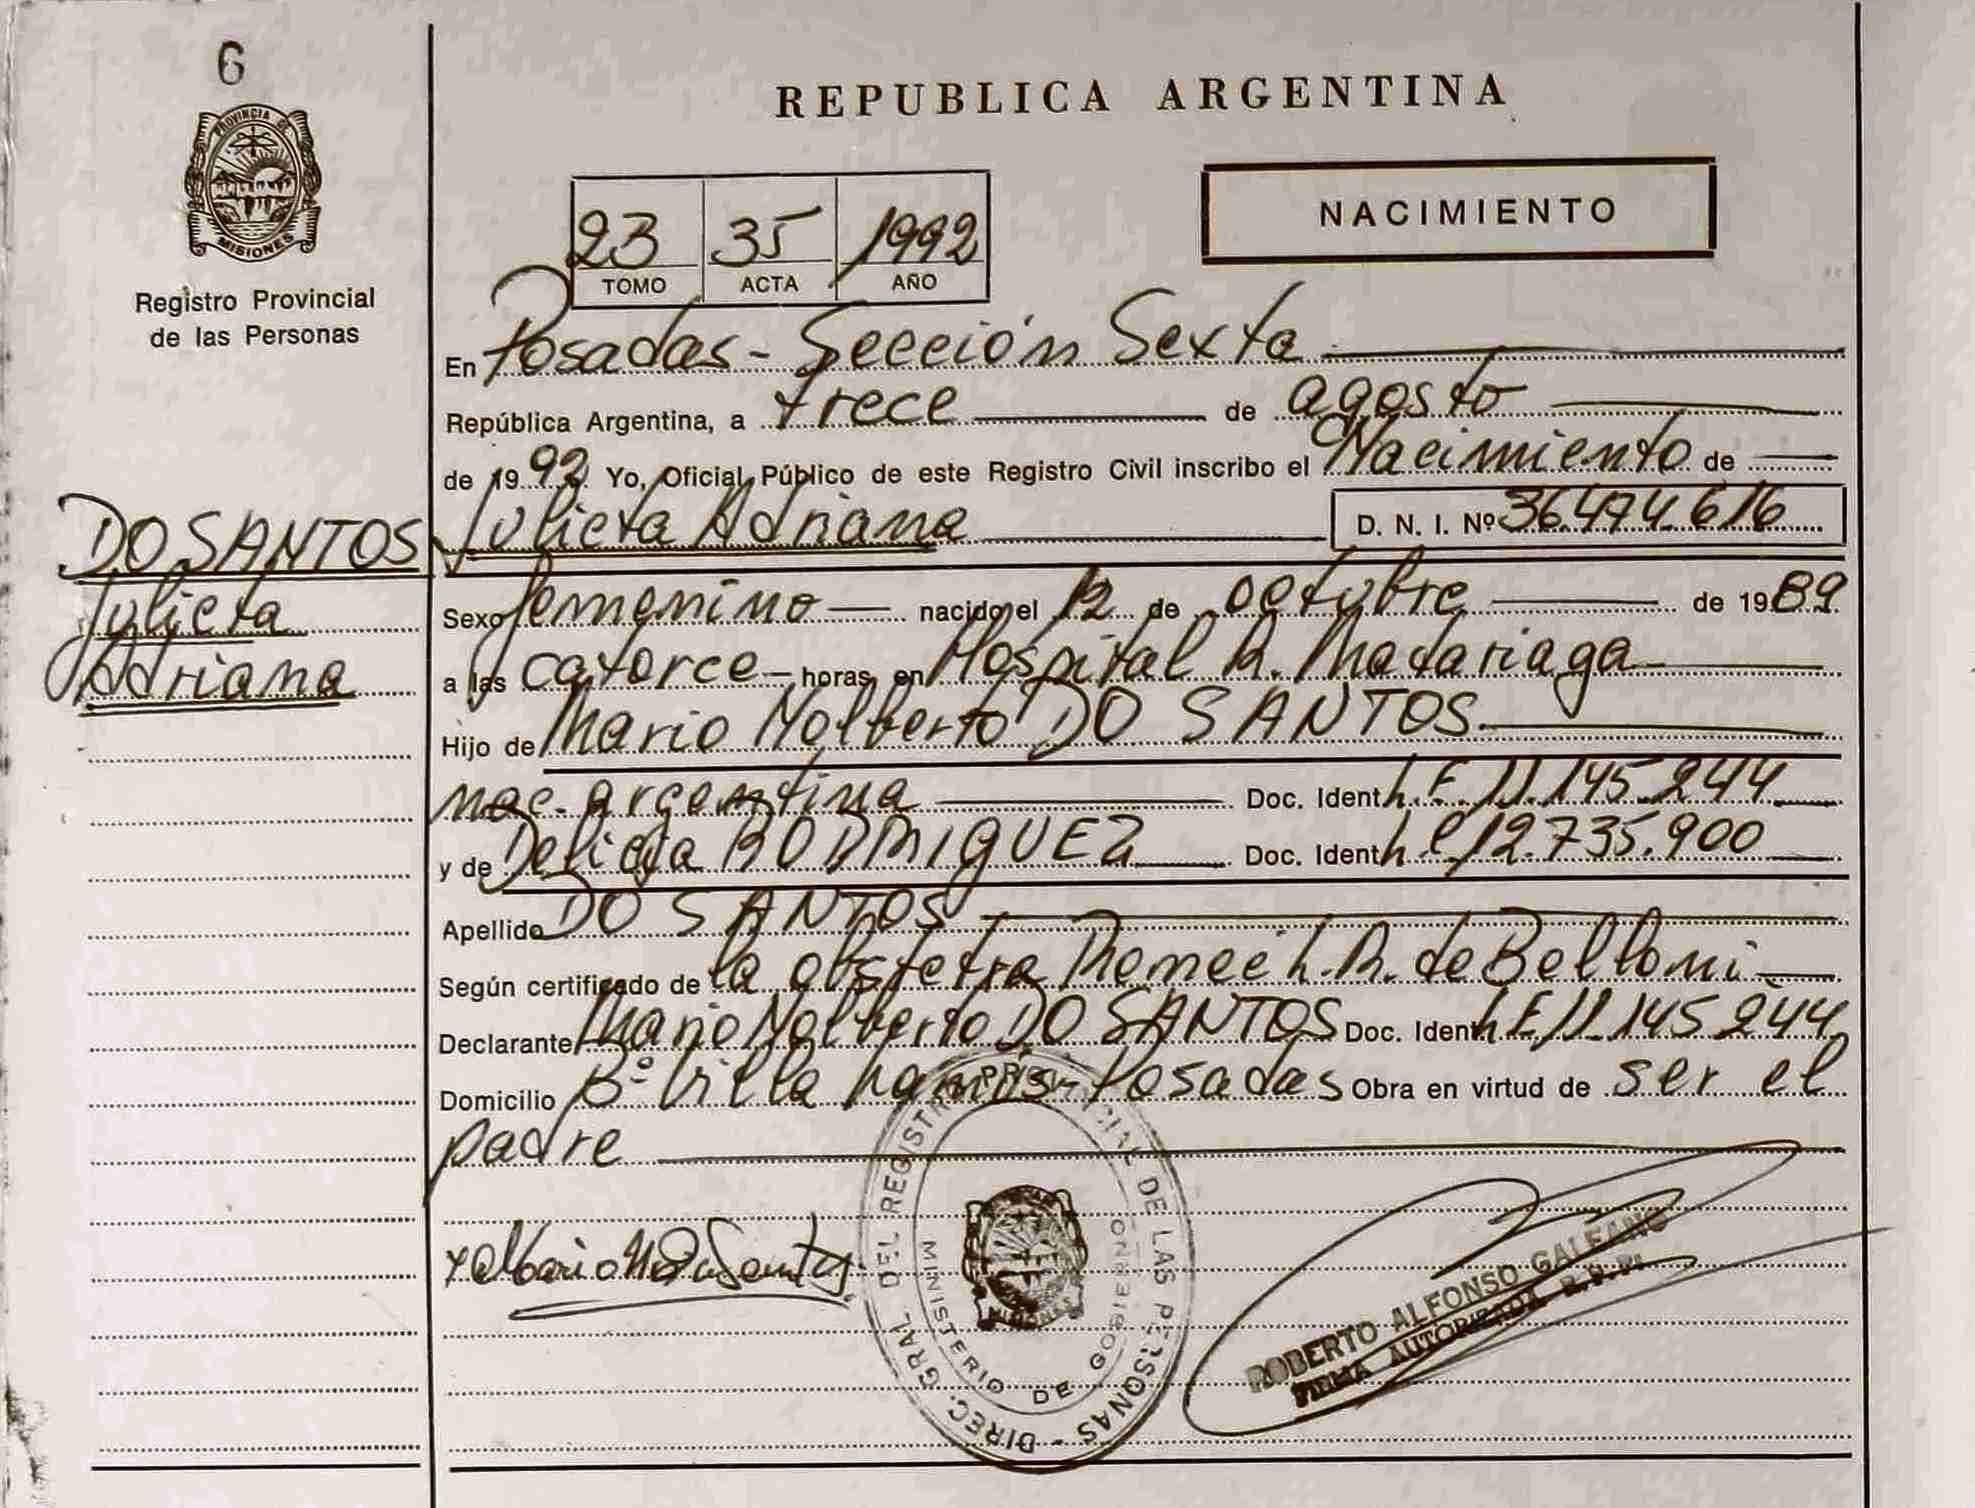 6
PROVINCIA DE
MISIONES
Registro Provincial
de las Personas
REPUBLICA ARGENTINA
NACIMIENTO
23 35 1992
TOMO ACTA AÑO
En Posadas - Sección Sexta
República Argentina, a trece de agosto
de 1992 Yo, Oficial Público de este Registro Civil inscribo el Nacimiento de
DO SANTOS Julieta Adriana D. N. I. Nº 36.474.616
Julieta
Adriana
Sexo femenino nacido el 12 de octubre de 1989
a las catorce horas en Hospital R. Madariaga
Hijo de Mario Nolberto DO SANTOS
nac. argentina Doc. Ident L.E. 11.145.244
y de Delicia RODRIGUEZ Doc. Ident L.C. 12.735.900
Apellido DO SANTOS
Según certificado de la obstetra Renee L. R. de Belloni
Declarante Mario Nolberto DO SANTOS Doc. Ident L.E. 11.145.244
Domicilio Bº Villa Posadas Obra en virtud de ser el
padre
DIREC. GRAL. DEL REGISTRO PROVINCIAL DE LAS PERSONAS -
MINISTERIO DE GOBIERNO
MISIONES
ROBERTO ALFONSO GALEANO
FIRMA AUTORIZADA R.P.P.